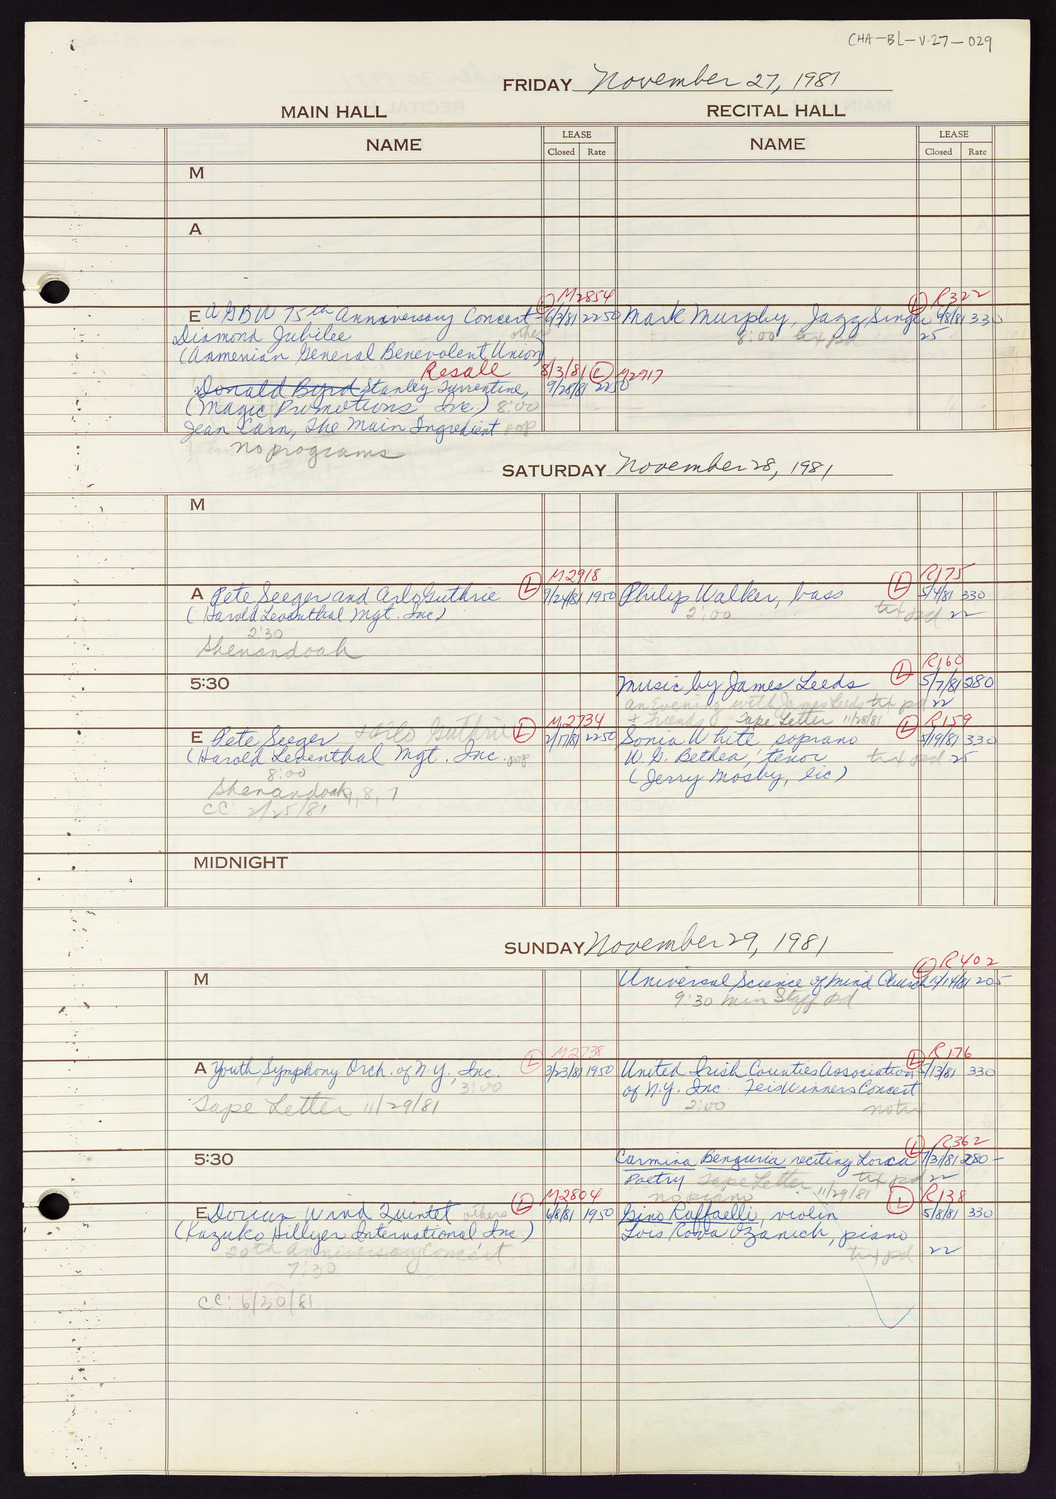 CHA-BL-V.27-029
FRIDAY November 27, 1981
MAIN HALL RECITAL HALL
NAME LEASE Closed Rate NAME LEASE Closed Rate
M
A
L M2854 L R322
E AGBU 75th Anniversary Concert- 6/3/81 2250 Mark Murphy, Jazz Singer 9/8/81 330
Diamond Jubilee others 8:00 txt pd 25
(Armenian General Benevolent Union)
Resale 8/3/81 L M2717
Donald Byrd Stanley Turrentine, 9/28/81 2250
(Magic Promotions, Inc.) 8:00
Jean Carn, The Main Ingredient pop
no programs
SATURDAY November 28, 1981
M
L M2918 L R175
A Pete Seeger and Arlo Guthrie 9/24/81 1950 Philip Walker, bass 5/4/81 330
(Harold Leventhal Mgt. Inc) 2:00 txt pd 22
2:30
Shenandoah
L R160
5:30 Music by James Leeds 5/7/81 280
an Evening with James Leeds txt pd 22
& Friends Tape Letter 11/28/81
L M2734 L R159
E Pete Seeger + Arlo Guthrie 2/17/81 2250 Sonia White, soprano 5/19/81 330
(Harold Leventhal Mgt. Inc. pop W. G. Bethea, tenor txt pd 25
8:00 (Jerry Mosby, lic)
Shenandoah 9, 8, 7
CC: 2/25/81
MIDNIGHT
SUNDAY November 29, 1981
L R402
M Universal Science of Mind Church 205-
9:30 Min Staff pd
L M2738 L R176
A Youth Symphony Orch. of N.Y., Inc. 3/23/81 1950 United Irish Counties Association 330
3:00 of N.Y. Inc Feis Winners Concert
Tape Letter 11/29/81 2:00 no txt
L R362
5:30 Carmina Benguria reciting Lorca 7/31/81 280-
Poetry Tape Letter txt pd 22
no piano 11/29/81
L M2804 L R138
E Dorian Wind Quintet others 6/8/81 1950 Gino Raffaelli, violin 5/8/81 330
(Kazuko Hillyer International, Inc.) Lois Kova Ozanich, piano
20th Anniversary Concert txt pd 22
7:30
CC: 6/30/81